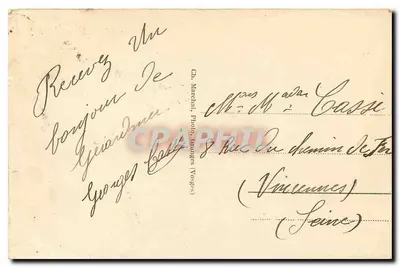 Recevez Un
bonjour de
Gérardmer
Georges Cassi
Ch. Marchal, Photo, Granges (Vosges)
CPAPHIL
Mrs Madm Cassi
8 Rue du chemin de Fer
(Vincennes)
(Seine)